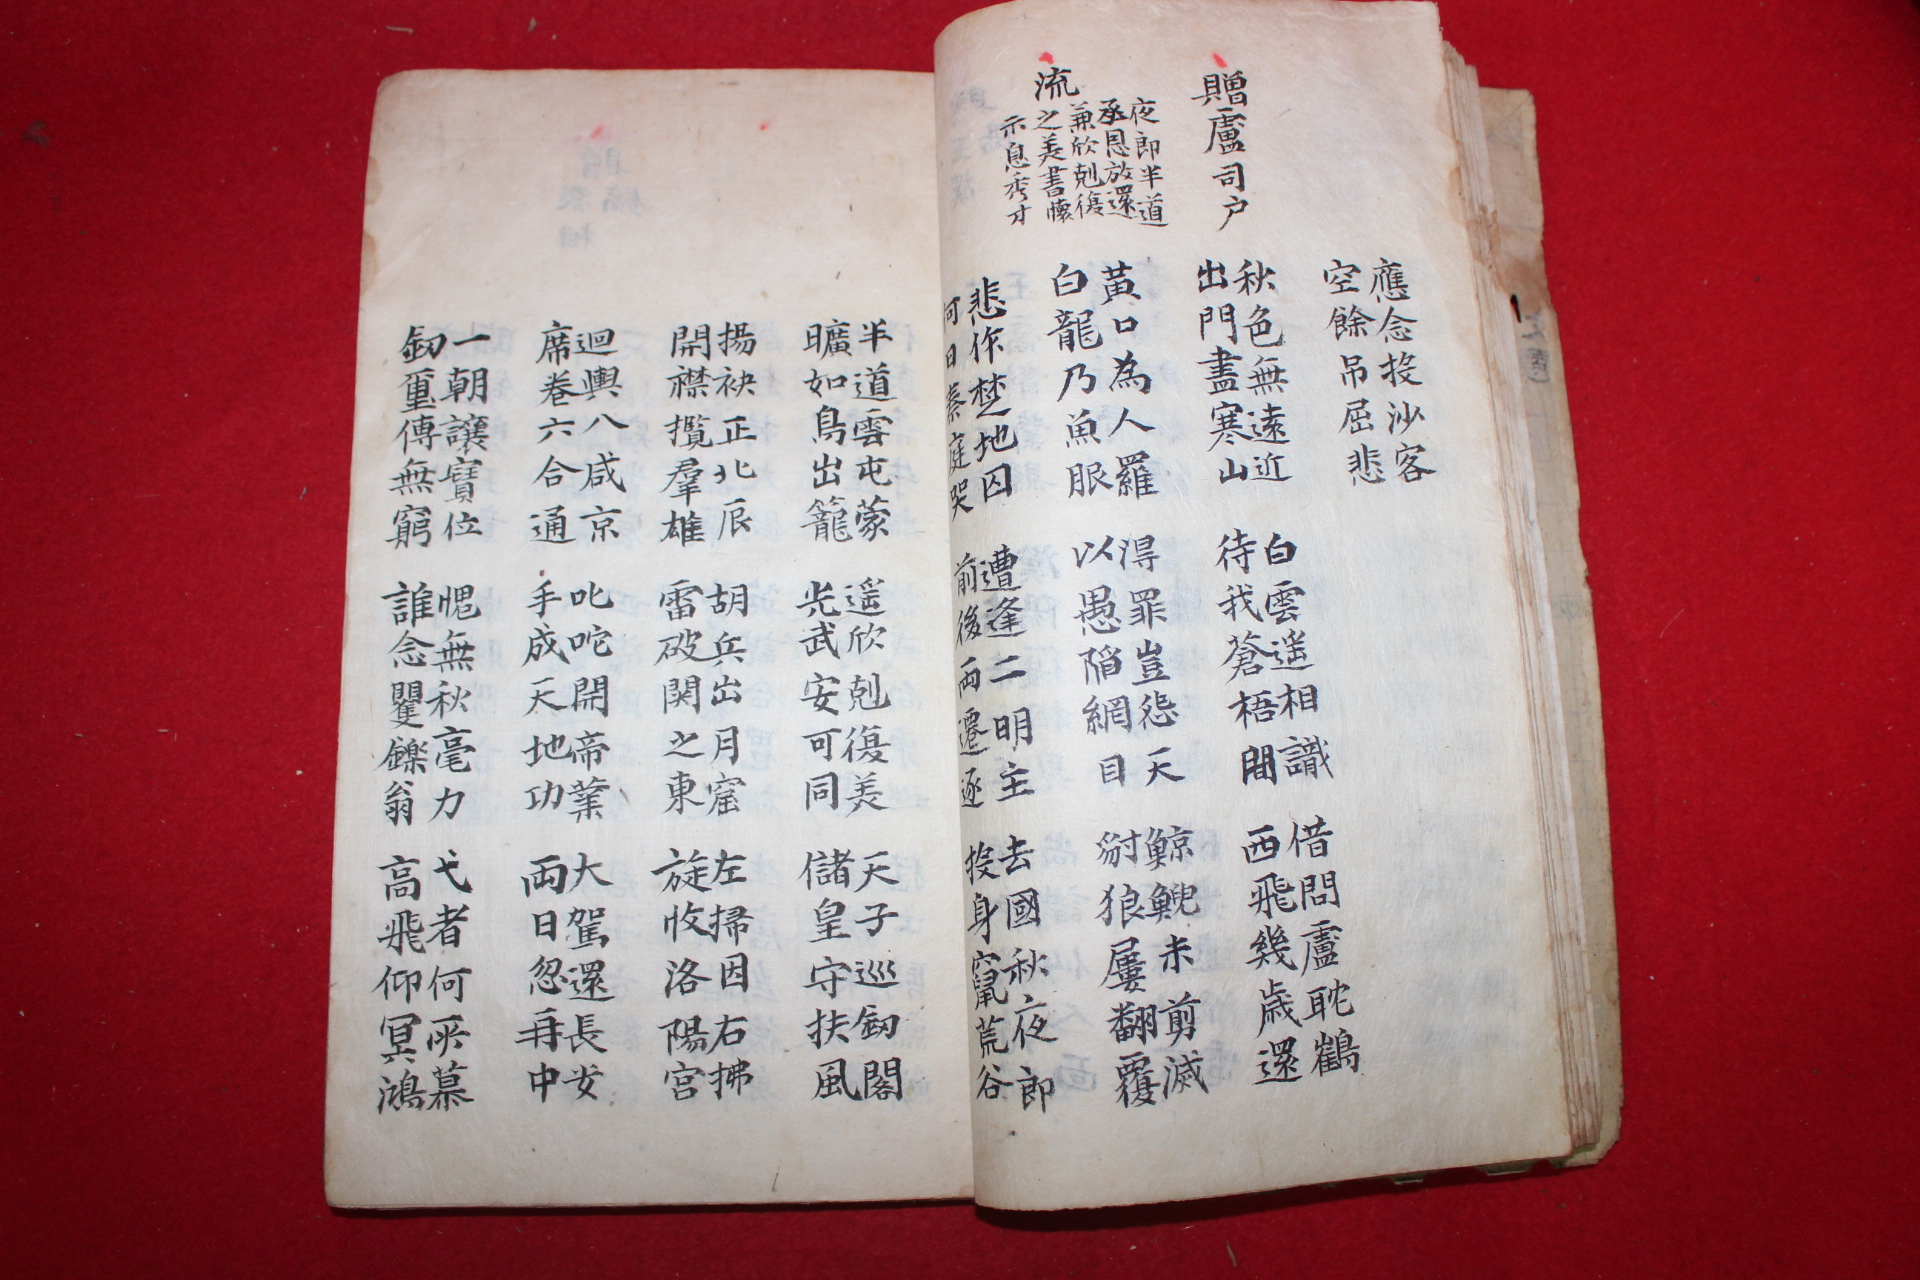 應念投沙客
空餘吊屈悲
贈盧司户
秋色無遠近
出門盡寒山
白雲遥相識
待我蒼梧間
借問盧耽鶴
西飛幾歲還
流
夜郎半道
丞恩放還
兼欣剋復
之美書懷
示息秀才
黃口為人羅
白龍乃魚眼
得罪豈怨天
以愚陷網目
鯨鯢未剪滅
豺狼屢翻覆
悲作楚地囚
何日秦庭哭
遭逢二明主
前後兩遷逐
去國秋夜郎
投身竄荒谷
半道雲屯蒙
曠如鳥出籠
遥欣剋復美
光武安可同
天子巡劒閣
儲皇守扶風
揚袂正北辰
開襟攬羣雄
胡兵出月窟
雷破関之東
左掃因右拂
旋收洛陽宮
迴輿八咸京
席卷六合通
叱咤開帝業
手成天地功
大駕還長安
兩日忽再中
一朝讓寶位
劒璽傳無窮
愧無秋毫力
誰念矍鑠翁
弋者何所慕
高飛仰冥鴻